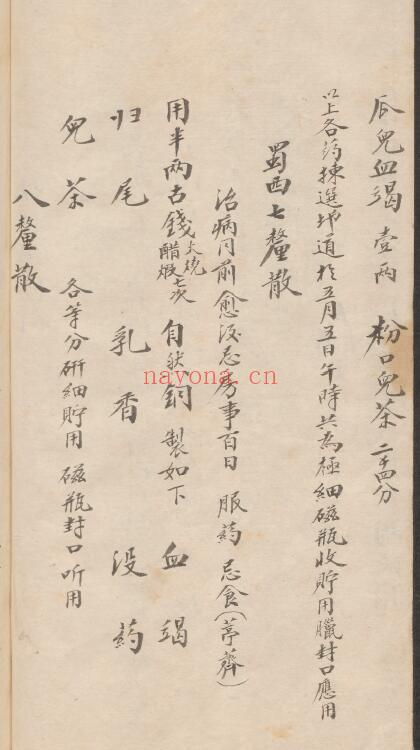 瓜兒血竭 壹兩 粉口兒茶 二千四分
以上各药揀選地道於五月五日午時共為極細磁瓶收貯用臘封口應用
蜀西七釐散
治病同前愈後忌房事百日 服药忌食(荸薺)
用半兩古錢火燒醋煅七次 自然銅製如下 血竭
归尾 乳香 没药
兒茶 各等分研細貯用 磁瓶封口听用
八釐散
nayona.cn